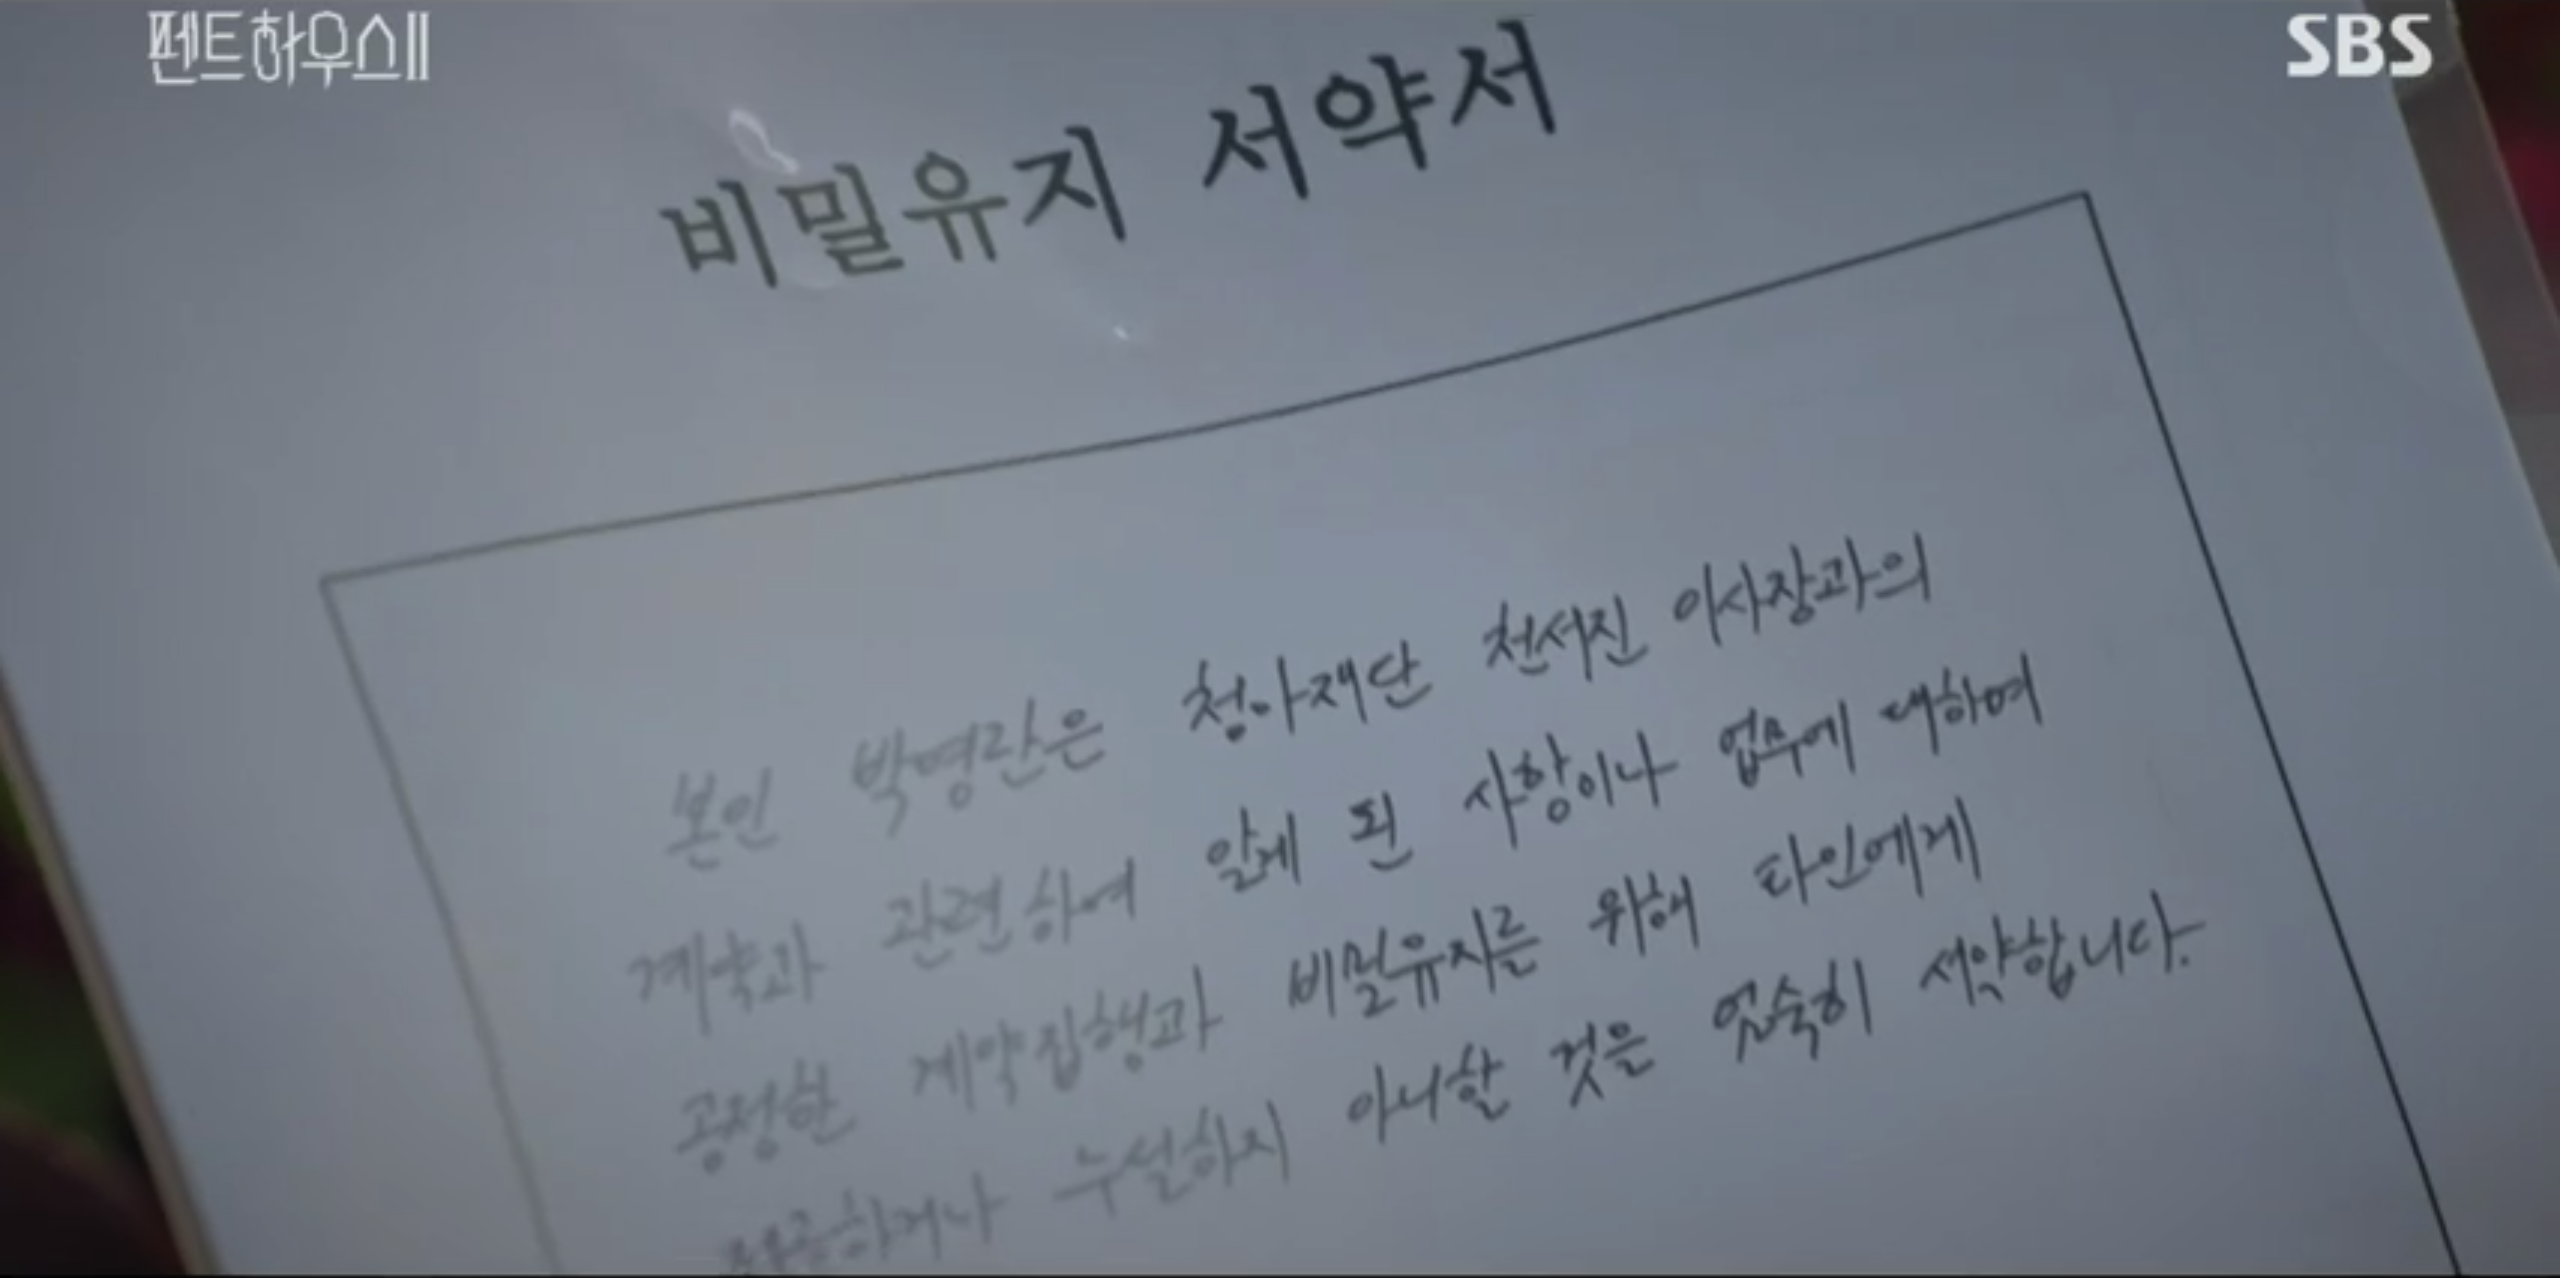 펜트하우스II
SBS
비밀유지 서약서
본인 박영란은 청아재단 천서진 이사장과의
계약과 관련하여 알게 된 사항이나 업무에 대하여
공정한 계약집행과 비밀유지를 위해 타인에게
제공하거나 누설하지 아니할 것은 엄숙히 서약합니다.